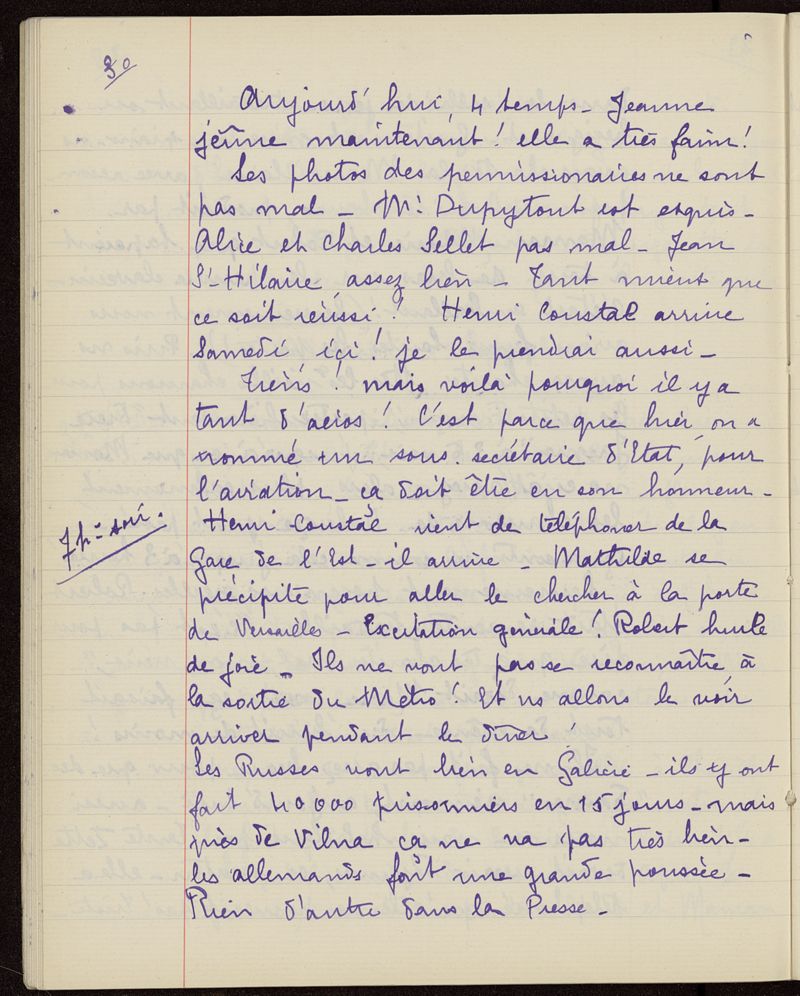 30
Aujourd'hui, 4 temps - Jeanne
jeûne maintenant ! elle a très faim !
Les photos des permissionaires ne sont
pas mal - Mr Dupytout est exquis -
Alice et Charles Sellet pas mal - Jean
St-Hilaire, assez bien - Tant mieux que
ce soit réussi ! Henri Coustal arrive
Samedi içi ! je le prendrai aussi -
! mais voilà pourquoi il y a
tant d'aéios ! C'est parce que hier, on a
nommé un sous. secrétaire d'Etat, pour
l'aviation - ça doit être en son honneur -
7h - soir.
Henri Coustal vient de téléphoner de la
Gare de l'Est - il arrive - Mathilde se
précipite pour aller le chercher à la porte
de Versailles - Excitation générale ! Robert hurle
de joie - Ils ne vont pas se reconnaître à
la sortie du Métro ! Et ns allons le voir
arriver pendant le dîner !
Les Russes vont bien en Galicie - ils y ont
fait 40000 prisonniers en 15 jours - mais
près de Vilna ça ne va pas très bien -
les allemands font une grande poussée -
Rien d'autre dans la Presse -